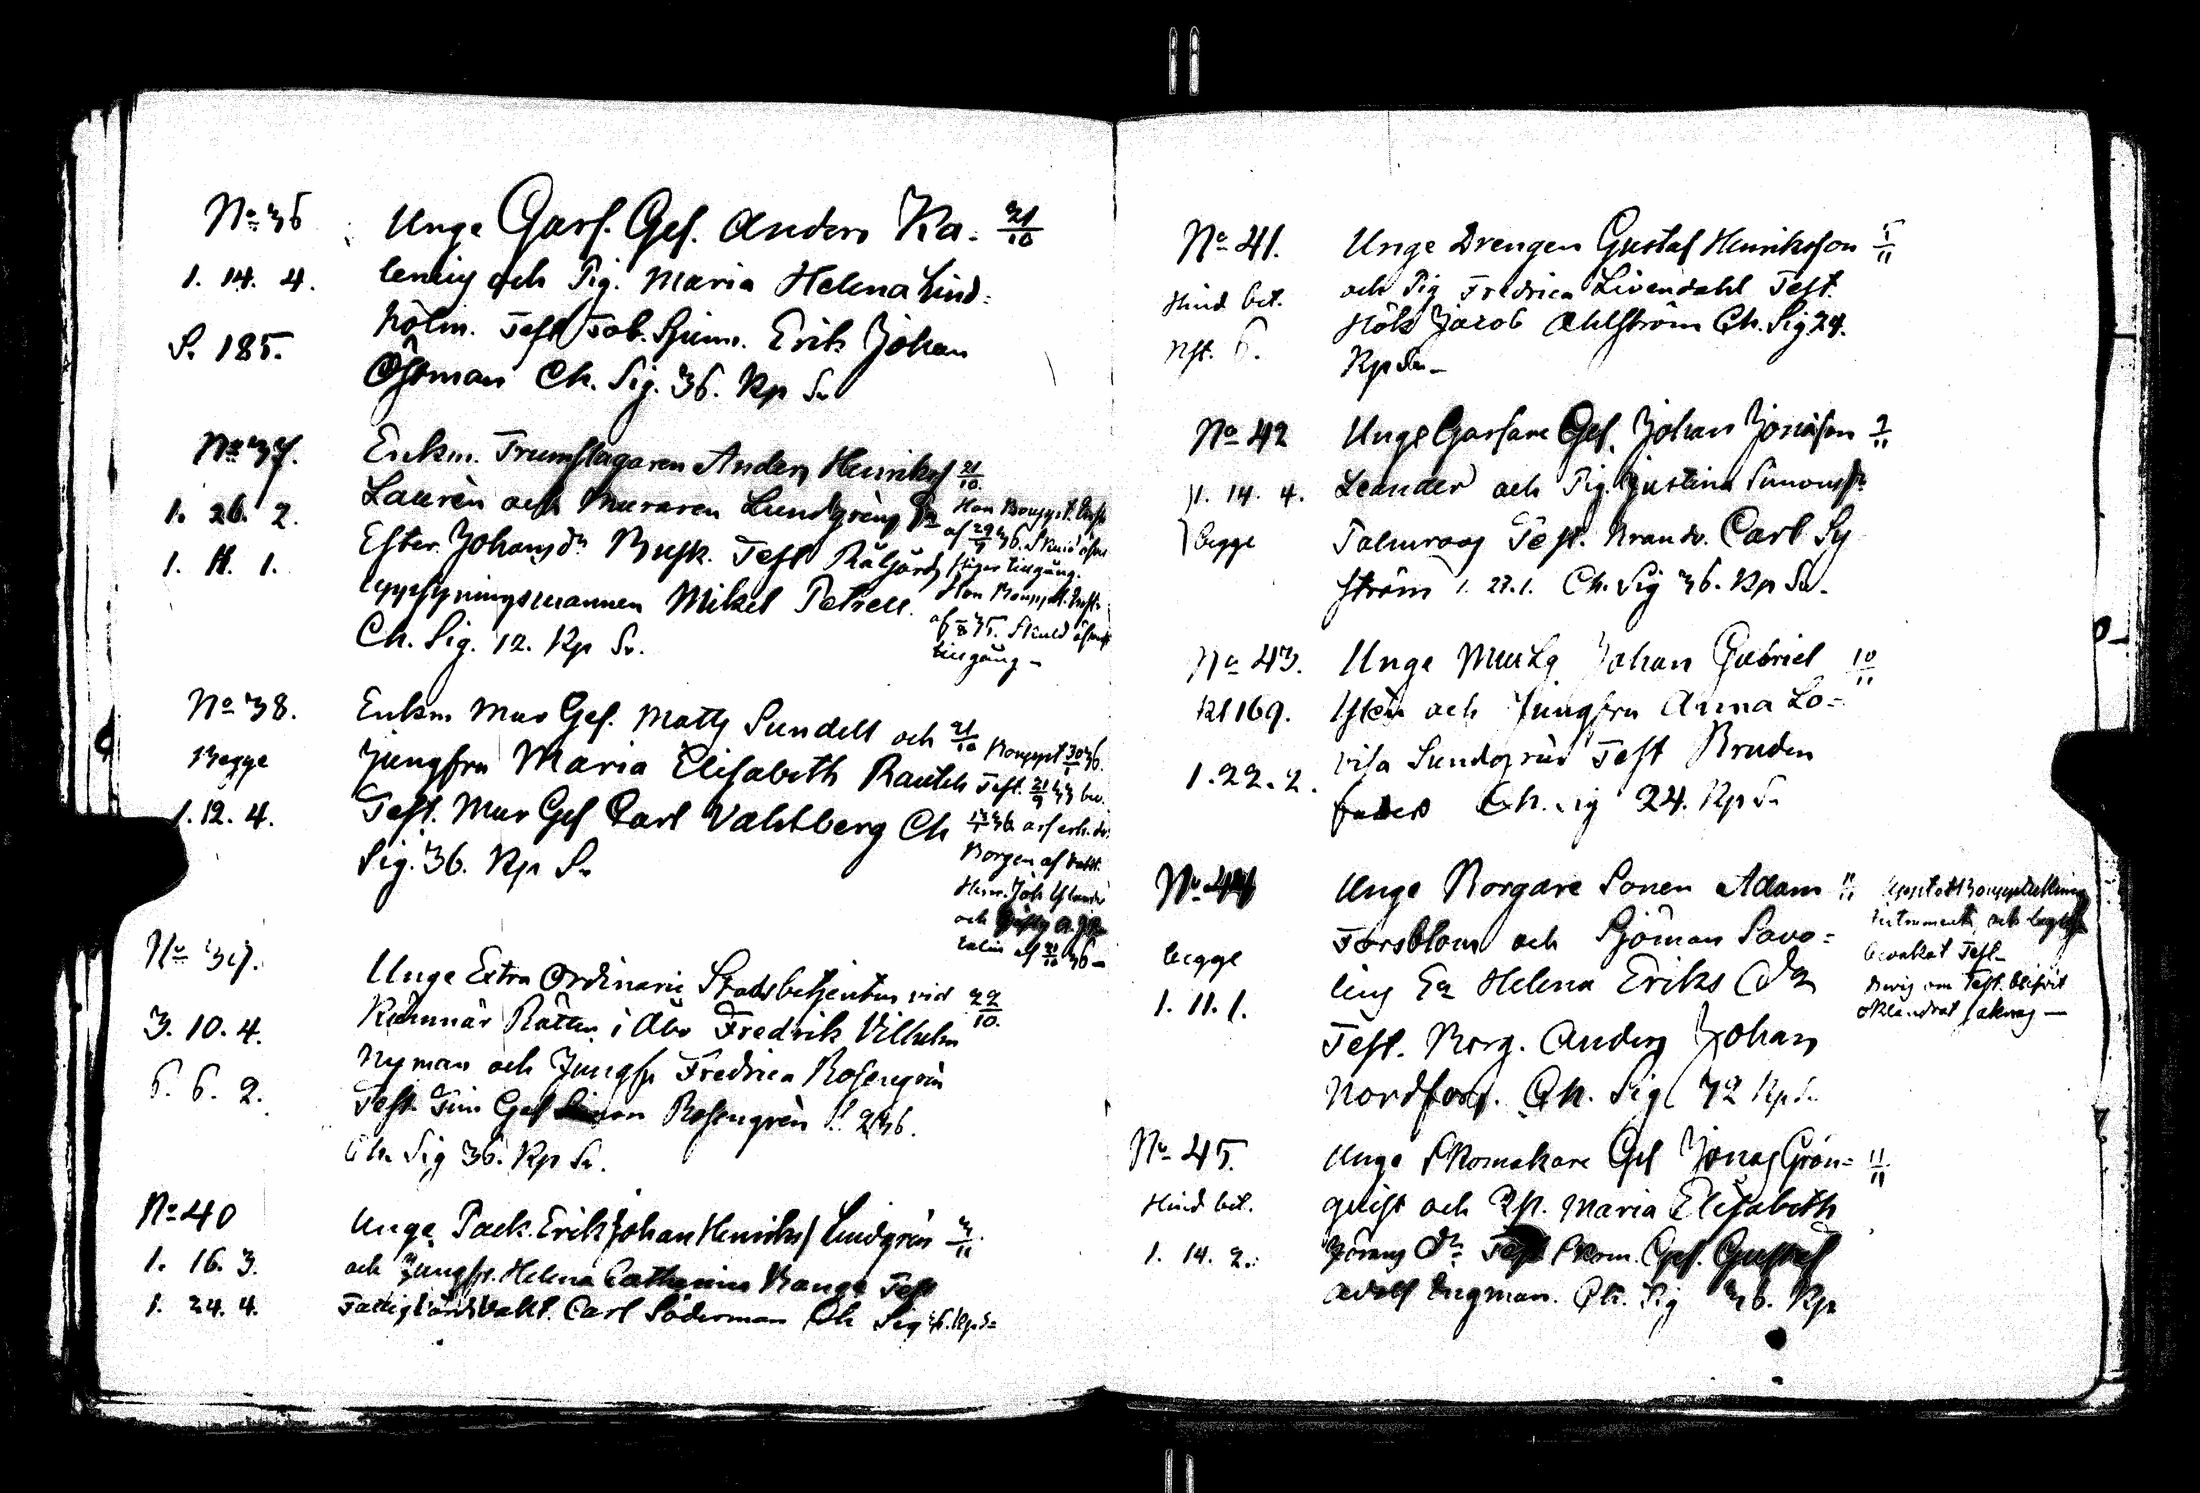 No 36
1. 14. 4.
S. 185.
Unge Garf. Gef. Anders Ka- 21/10
lenius och Pig. Maria Helena Lind=
holm. Test. Tob. Spinn. Erik Johan
Öhman Ch. Sig. 36. Kp Sr
No 37.
1. 26. 2.
1. 11. 1.
Enkm. Trumslagaren Anders Henrikss 21/10
Laurèn och Muraren Lundgrens
Ester Johansdr Busk. Test Rålgårds
uppsyningsmannen Mikel Petrell.
Ch. Sig. 12. Kp Sr.
Hon Bouppt. Instr
af 29/9 36. Skuld öfver
stiger tillgång.
Han Bouppt. Instr.
af 35. Skuld öfver
tillgång -
No 38.
Begge
1. 12. 4.
Enkm Mur Gef. Matts Sundell och 21/10
Jungfru Maria Elisabeth Rautell
Test. Mur Gef Carl Vahlberg Ch
Sig. 36. Kp Sr
Bouppt 36.
Test. 33 be.
36 arf erh. s.
Borgen af Vakt.
Henr. Joh
och
af 36 -
No 39.
3. 10. 4.
6. 6. 2.
Unge Extra Ordinarie Stadsbetjenten vid 22/10.
Kämnär Rätten i Åbo Fredrik Vilhelm
Nyman och Jungfr Fredrica Rosengrèn
Test. Tim Gef Simon Rosengrèn S. 236.
Ch. Sig 36. Kp Sr.
No 40
1. 16. 3.
1. 24. 4.
Unge Pack. Erik Johan Henrikss Lindgrèn 3/11
och Jungfr. Helena Catharina Range Test
Fattiggårds Vakt. Carl Söderman Ch Sig 36. Kp. Sr
No 41.
Hind bet.
Nst. 6.
Unge Drengen Gustaf Henriksson 5/11
och Pig Fredrica Livendahl Test.
Hök Jacob Ahlström Ch. Sig 24.
Kp Sr -
No 42
1. 14. 4.
begge
Unge Garfare Gef. Johan Jonasson 7/11
Leander och Pig. Justina Simonsdr
Palmroos Test. Brandv. Carl Sy
ström 1. 27. 1. Ch. Sig 36. Kp Sr.
No 43.
Kl 169.
1. 22. 2.
Unge Mur Lg Johan Gabriel 10/11
Islén och Jungfru Anna Lo=
visa Sundgrèn Test Bruden
fader Ch. Sig 24. Kp Sr
No 44
begge
1. 11. 1.
Unge Borgare Sonen Adam 11/11
Forsblom och Sjöman Savo=
lius Ea Helena Eriks Dr
Test. Borg. Anders Johan
Nordfors. Ch. Sig 72 Kp Sr
Uppstått Bouppteckning
Instrument, och begge
bevakat Test -
Bevis om Test. blifvit
oklandrat
No 45.
Hind bet.
1. 14. 2.
Unge Skomakare Gef Jonas Grön= 11/11
quist och Pp. Maria Elisabeth
Görans Dr. Test Skom. Gef. Gustaf
Adolf Engman. Ch. Sig 36. Kp